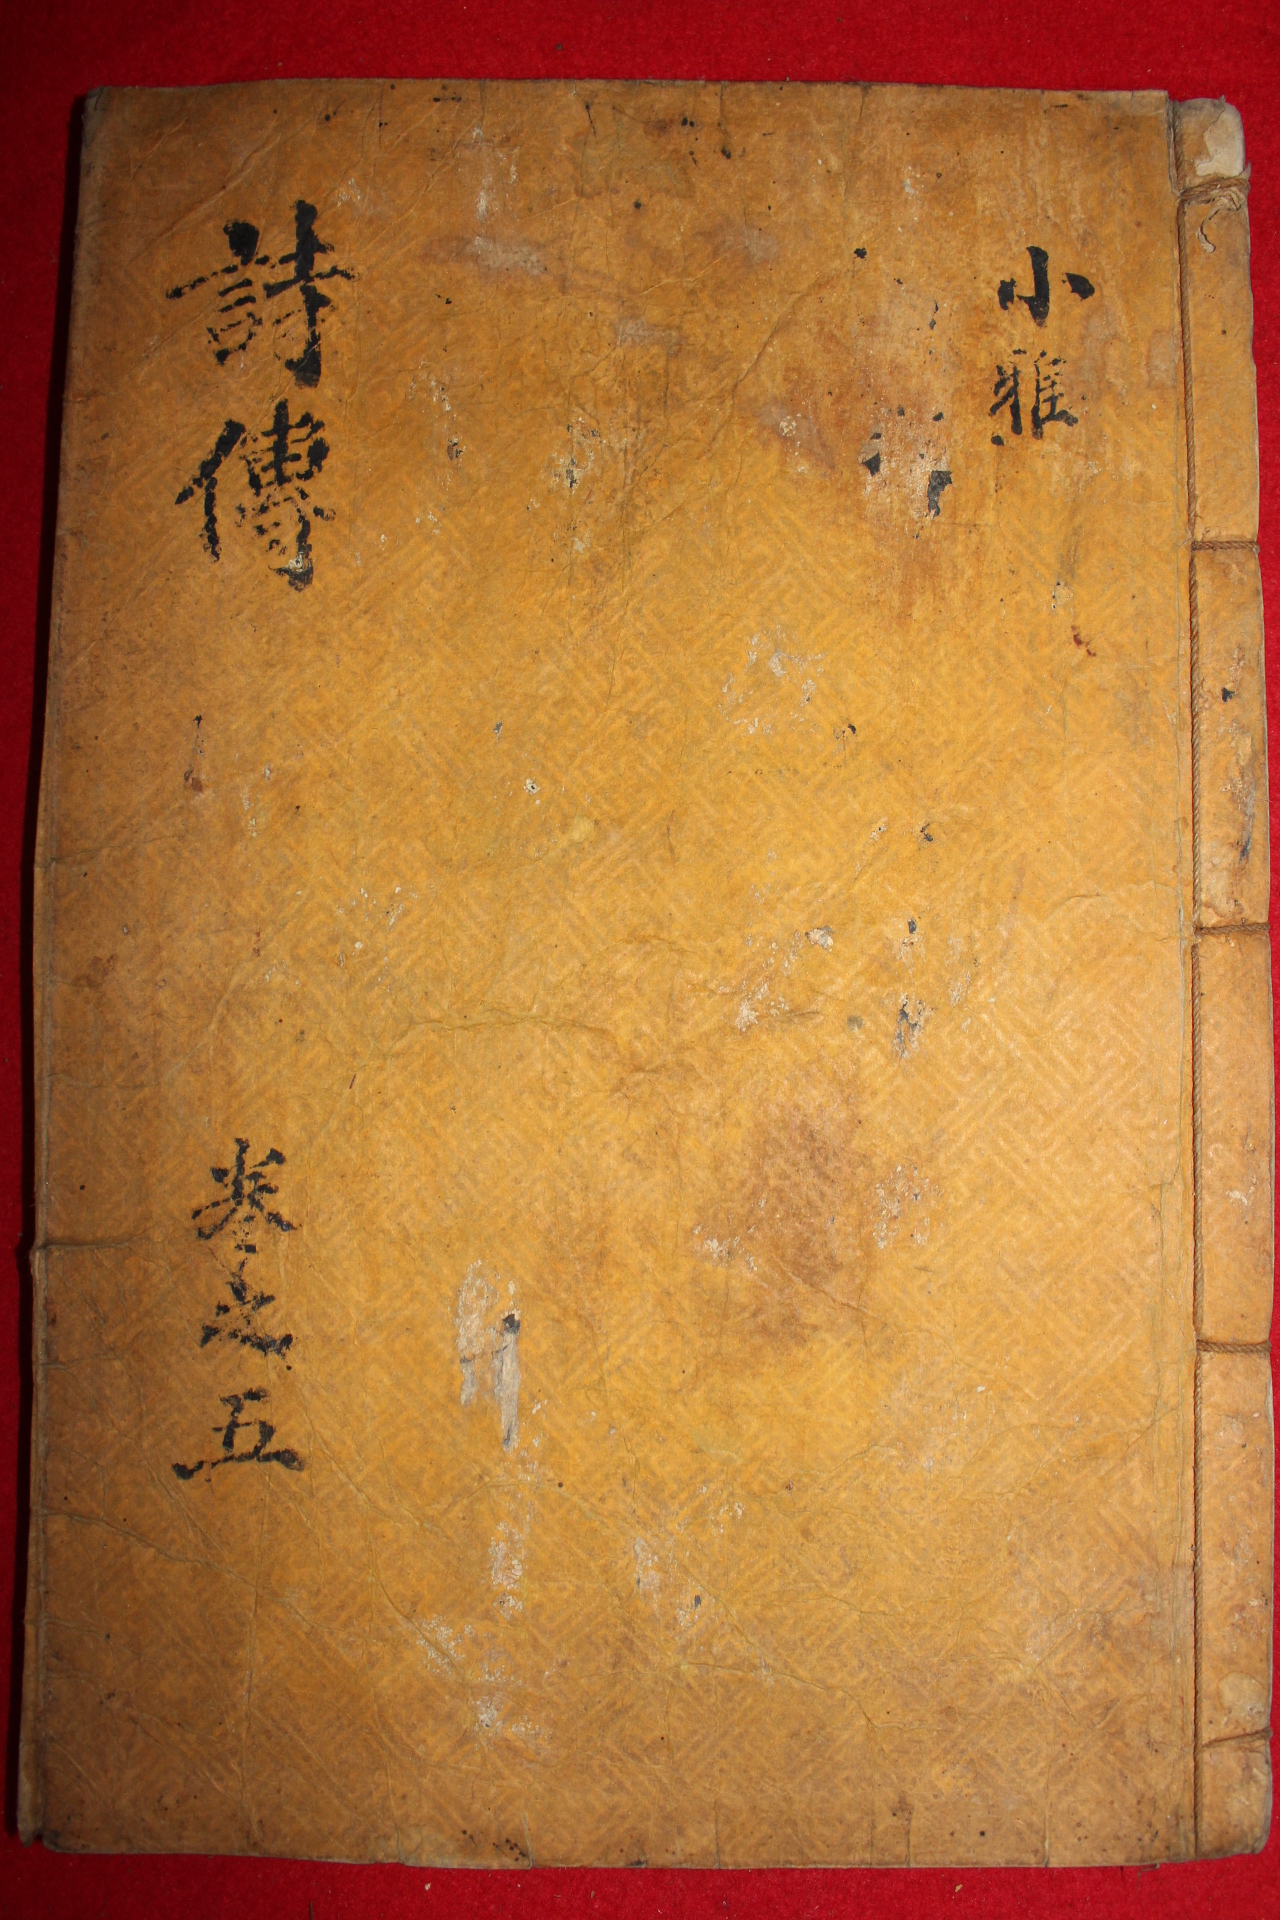 小雅
詩傳
卷之五